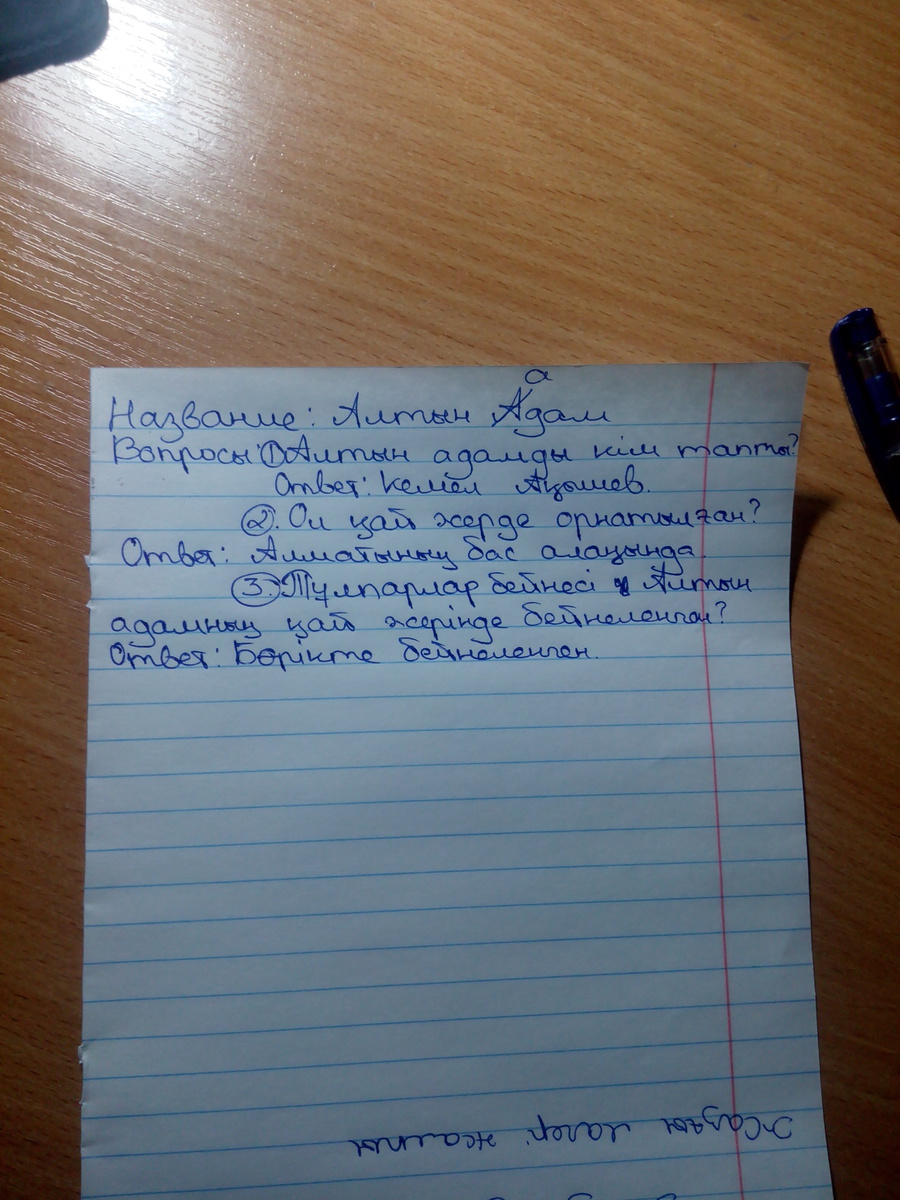 Название: Алтын адам
Вопросы: ① Алтын адамды кім тапты?
Ответ: Кемел Ақышев.
②. Ол қай жерде орнатылған?
Ответ: Алматының бас алаңында.
③. Тұлпарлар бейнесі Алтын
адамның қай жерінде бейнеленген?
Ответ: Бөрікте бейнеленген.
Жазғы лагер жалпы